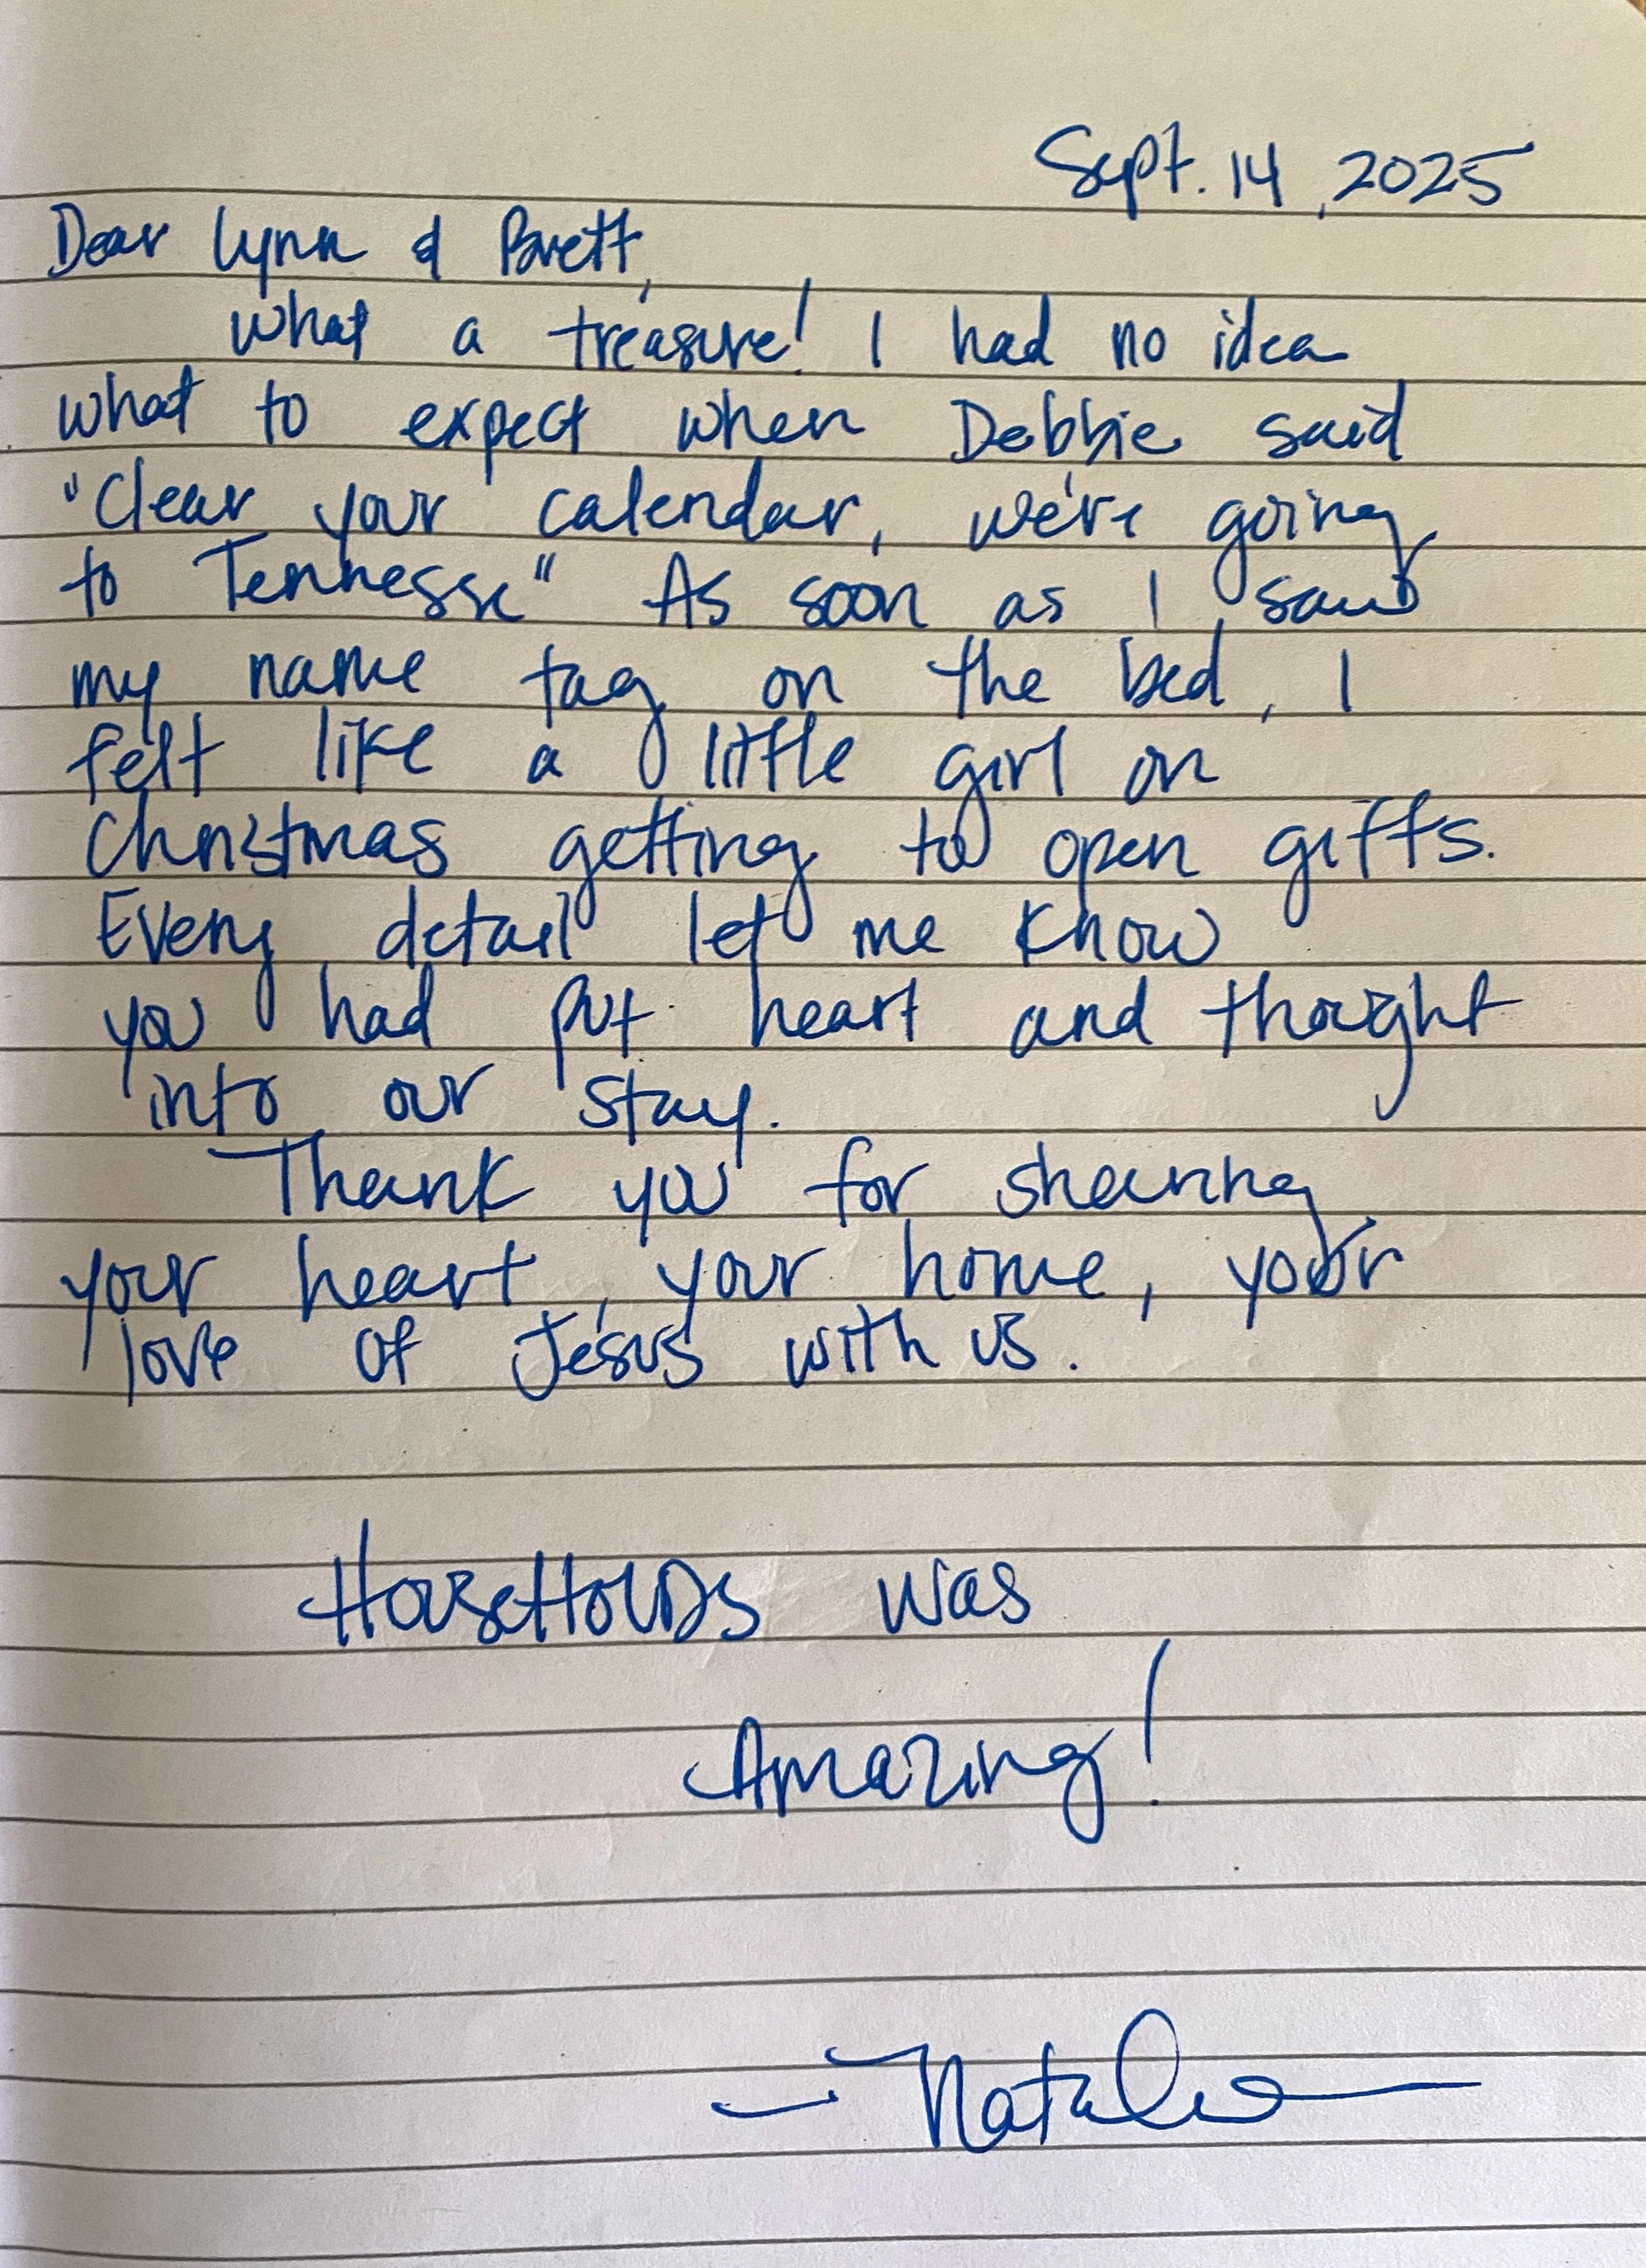 Sept. 14, 2025
Dear Lynn & Brett,
What a treasure! I had no idea
what to expect when Debbie said
"Clear your calendar, we're going
to Tennesse" As soon as I saw
my name tag on the bed, I
felt like a little girl on
Christmas getting to open gifts.
Every detail let me know
you had put heart and thought
into our stay.
Thank you for sharing
your heart, your home, your
love of Jesus with us.
HouseHolds was
Amazing!
- Natalie